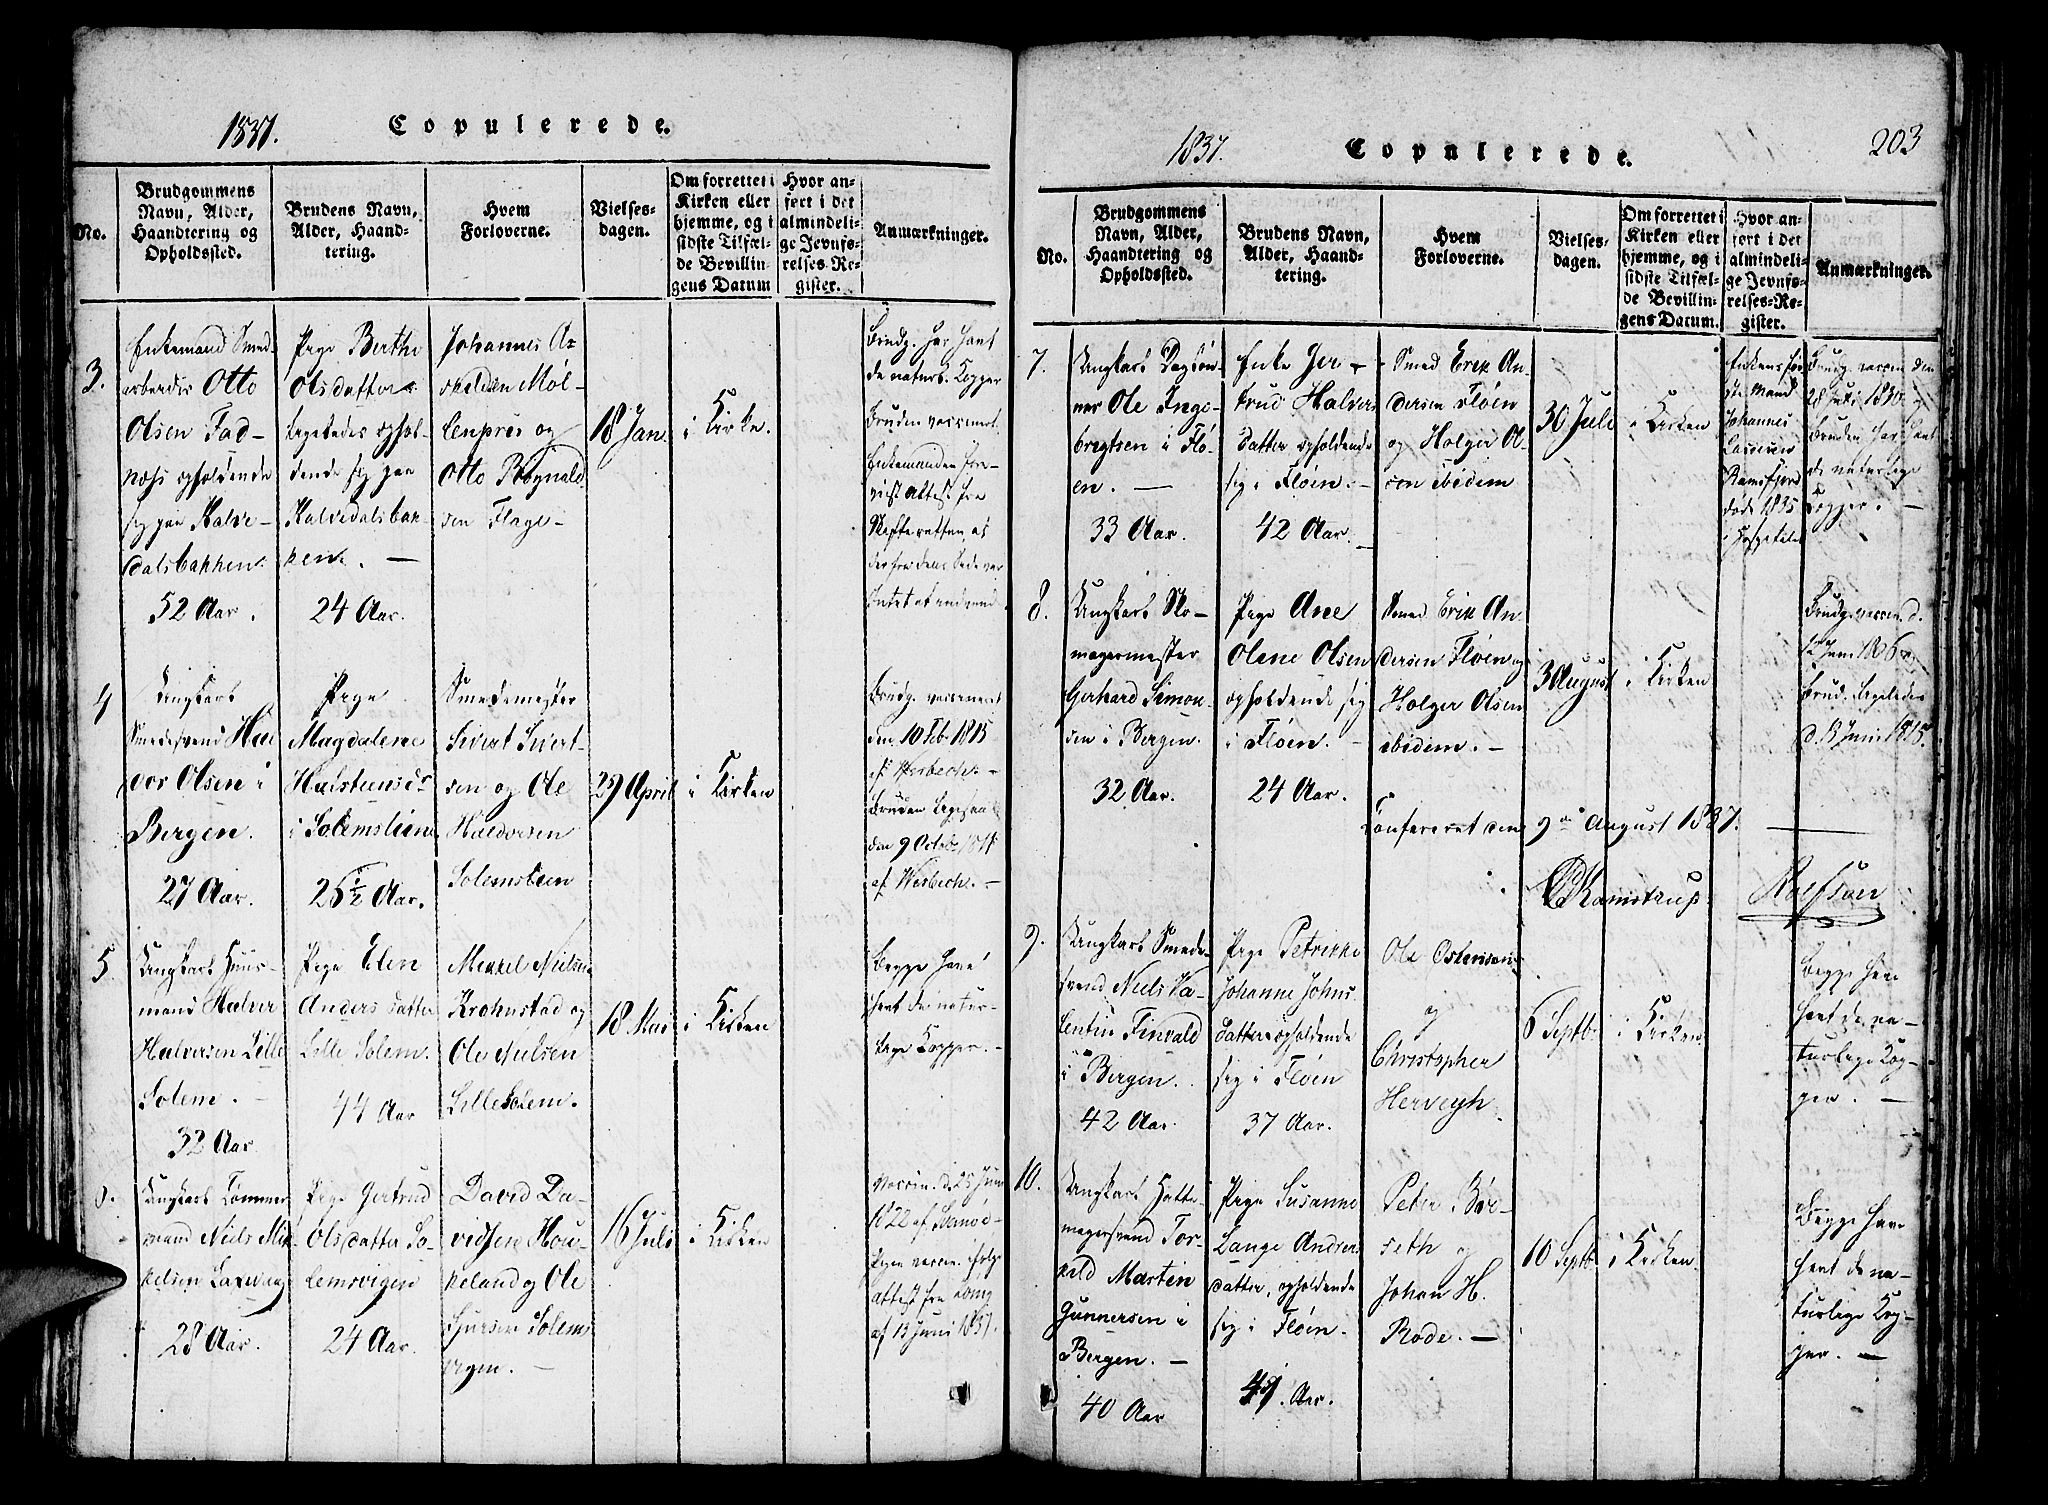 1837. Copulerede.
No.
Brudgommens
Navn, Alder,
Haandtering og
Opholdssted.
Brudens Navn,
Alder, Haand-
tering.
Hvem
Forloverne.
Vielses-
dagen.
Om forrettet i
Kirken eller
hjemme, og i
sidste Tilfæl-
de Bevillin-
gens Datum
Hvor an-
ført i det
almindeli-
ge Jevnfø-
relses-Re-
gister.
Anmærkninger.
3.
Enkemand Smed-
arbeider Otto
Olsen Fad-
næss opholdende
sig paa Kalve-
dalsbakken.
52 Aar.
Pige Berthe
Olsdatter
ligeledes ophol-
dende sig paa
Kalvedalsbak-
ken. —
24 Aar.
Johannes
Möl-
lenpris og
Otto
sen Flage-
18 Jan.
i Kirke.
Brudg. har havt
de naturl. Kopper
Bruden vaccineret.
Enkemanden fore-
vist Attest fra
Skifteretten, at
4
Ungkarl
Smedesvend Hal
vor Olsen i
Bergen.
27 Aar.
Pige
Magdalene
Halstensdr
i Solemslien
25½ Aar.
Smedemester
Sivert Sivert-
sen og Ole
Haldorsen
Solemslien
29 April
i Kirken
Brudg. vaccineret
den 10 Feb. 1815
af Wesbech. —
Bruden ligesaa
den 9 Octob. 1814
af Wesbech. —
5.
Ungkarl Huus-
mand Halver
Halversen Lille
Solem. —
32 Aar.
Pige Elen
Anders datter
Lille Solem.
44 Aar
Mikkel Nielsen
Krohnstad og
Ole Nielsen
Lille Solem.
18 Mai
i Kirken
Begge have
havt de natur-
lige Kopper. —
6.
Ungkarl Tömmer
mand Niels Mik-
kelsen
28 Aar.
Pige Gertrud
Olsdatter So-
lemsvigen
24 Aar.
David Da-
vidsen Hou-
keland og Ole
Sjursen Solems
vigen. —
16 Juli
i Kirken
Vaccin. d. 25 Juni
1822 af
Pigen vaccin. ifølge
Attest fra
af 13 Juni 1837.
1837. Copulerede. 203
No.
Brudgommens
Navn, Alder,
Haandtering og
Opholdssted.
Brudens Navn,
Alder, Haand-
tering.
Hvem
Forloverne.
Vielses-
dagen.
Om forrettet i
Kirken eller
hjemme, og i
sidste Tilfæl-
de Bevillin-
gens Datum.
Hvor an-
ført i det
almindeli-
ge Jevnfø-
relses-Re-
gister.
Anmærkninger.
7.
Ungkarl Daglön-
ner Ole Inge-
bregtsen i Flö-
en. —
33 Aar.
Enke Jer-
trud Halvers
datter opholdende
sig i Flöen. —
42 Aar. —
Smed Erik An-
dersen Flöen
og Holger Ol-
sen ibidem
30 Juli
i Kirken
Enkens før-
ste Mand
Johannes
Lassesen
Ramsfjord
døde 1835
i Hospitalet
Brudg. vaccin. den
28 Juli 1830, og
Bruden har havt
de naturlige
Kopper. —
8.
Ungkarl Sko-
magermester
Gerhard Simon-
sen i Bergen.
32 Aar.
Pige Ane
Olene Olsen
opholdende sig
i Flöen. —
24 Aar.
Smed Erik An-
dersen Flöen og
Holger Olsen
ibidem. —
3 August
i Kirken
Brudg. vaccin. d.
12 Juni 1806 og
Brud. ligeledes
Confereret den 9de August 1837. —
Kamstrup. Rolfsen
9.
Ungkarl Smede-
svend Niels Va-
lentin Finvald
i Bergen.
42 Aar.
Pige Petrikke
Johanne Johns
datter opholdende
sig i Flöen
37 Aar.
Ole Ostensen
og
Christopher
Herveigh.
6 Septb.
i Kirken
Begge have
havt de na-
turlige Kop-
per. —
10.
Ungkarl Hatte-
magersvend Tor-
kild Martin
Gunnersen i
Bergen. —
40 Aar
Pige Susanne
Lange Andreas
datter, opholdende
sig i Flöen.
Aar.
Peter Bör-
seth og
Johan H.
Rode. —
10 Septb
i Kirken.
Begge have
havt de na-
turlige Kop-
per. —